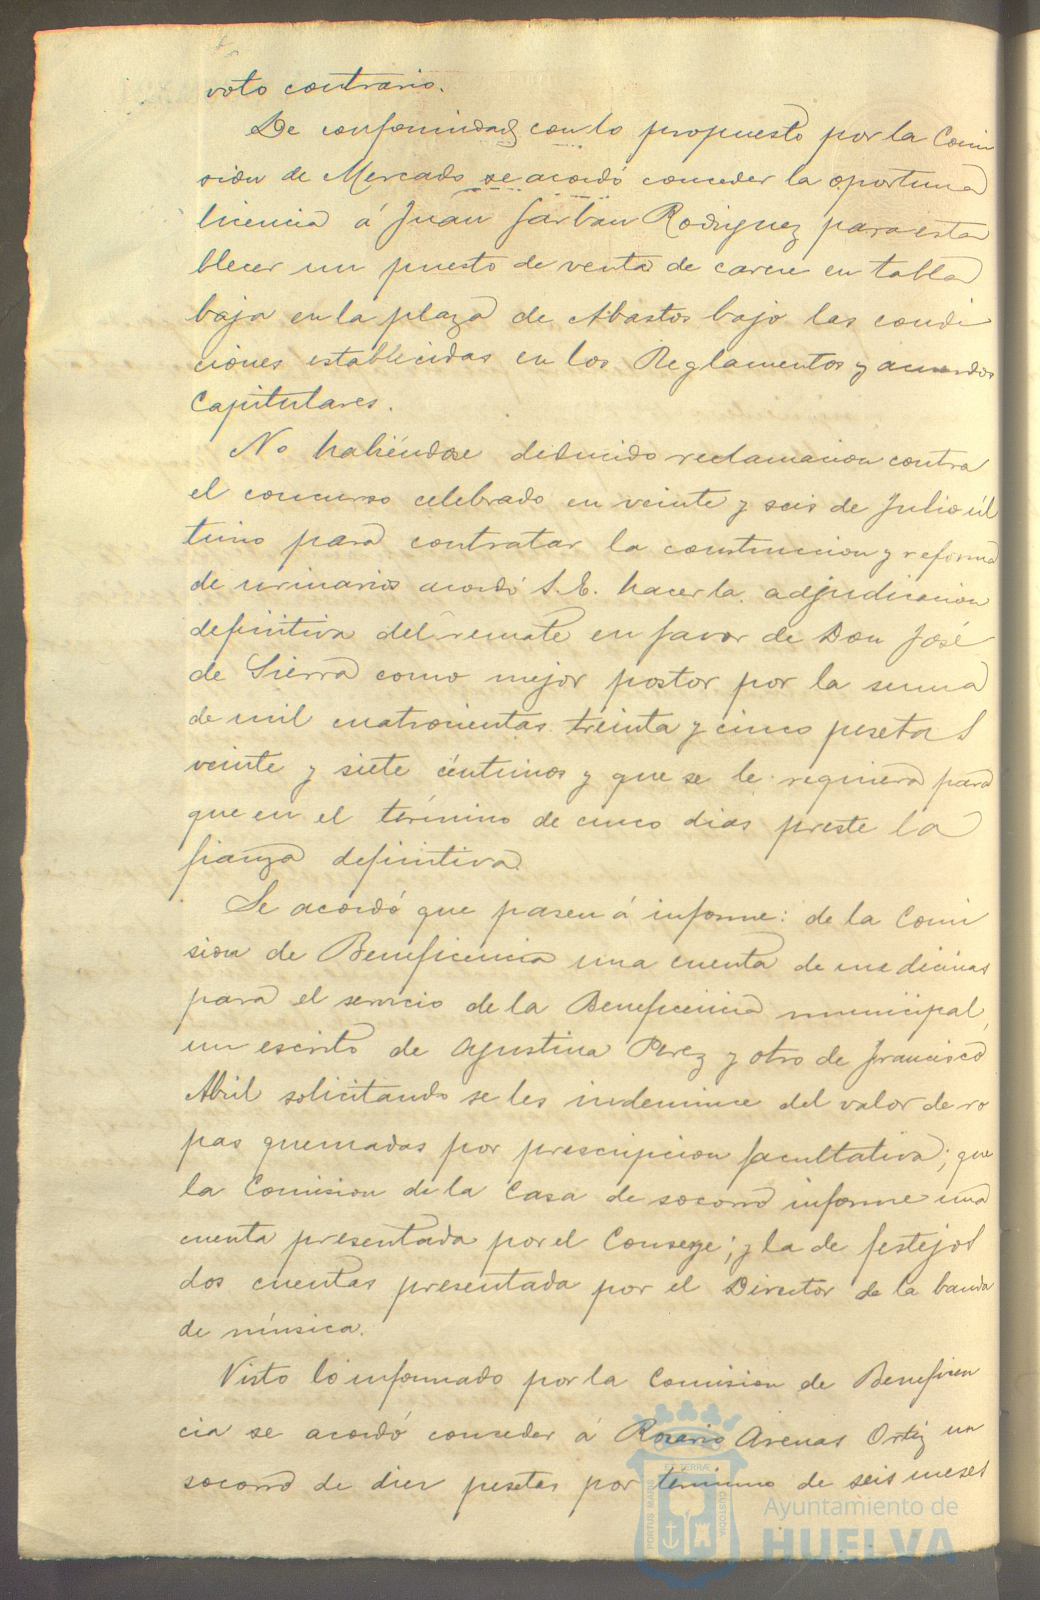 voto contrario.
De conformidad con lo propuesto por la Comi
sion de Mercado se acordó conceder la oportuna
licencia á Juan Garban Rodriguez para esta
blecer un puesto de venta de carne en tabla
baja en la plaza de Abastos bajo las condi
ciones establecidas en los Reglamentos y acuerdos
Capitulares.
No habiéndose deducido reclamacion contra
el concurso celebrado en veinte y seis de Julio úl
timo para contratar la construccion y reforma
de urinarios acordó S.E. hacer la adjudicacion
definitiva del remate en favor de Don José
de Sierra como mejor postor por la suma
de mil cuatrocientas treinta y cinco pesetas
veinte y siete céntimos y que se le requiera para
que en el término de cinco dias preste la
fianza definitiva.
Se acordó que pasen á informe: de la Comi
sion de Beneficencia una cuenta de medicinas
para el servicio de la Beneficencia municipal,
un escrito de Agustina Perez y otro de Francisco
Abril solicitando se les indemnice del valor de ro
pas quemadas por prescripcion facultativa; que
la Comision de la Casa de socorro informe una
cuenta presentada por el Conserge; y la de festejos
dos cuentas presentada por el Director de la banda
de música.
Visto lo informado por la Comision de Beneficen
cia se acordó conceder á Rosario Arenas Ortiz un
socorro de diez pesetas por término de seis meses
PORTUS MARIS
ET TERRÆ
CUSTODIA
Ayuntamiento de
HUELVA